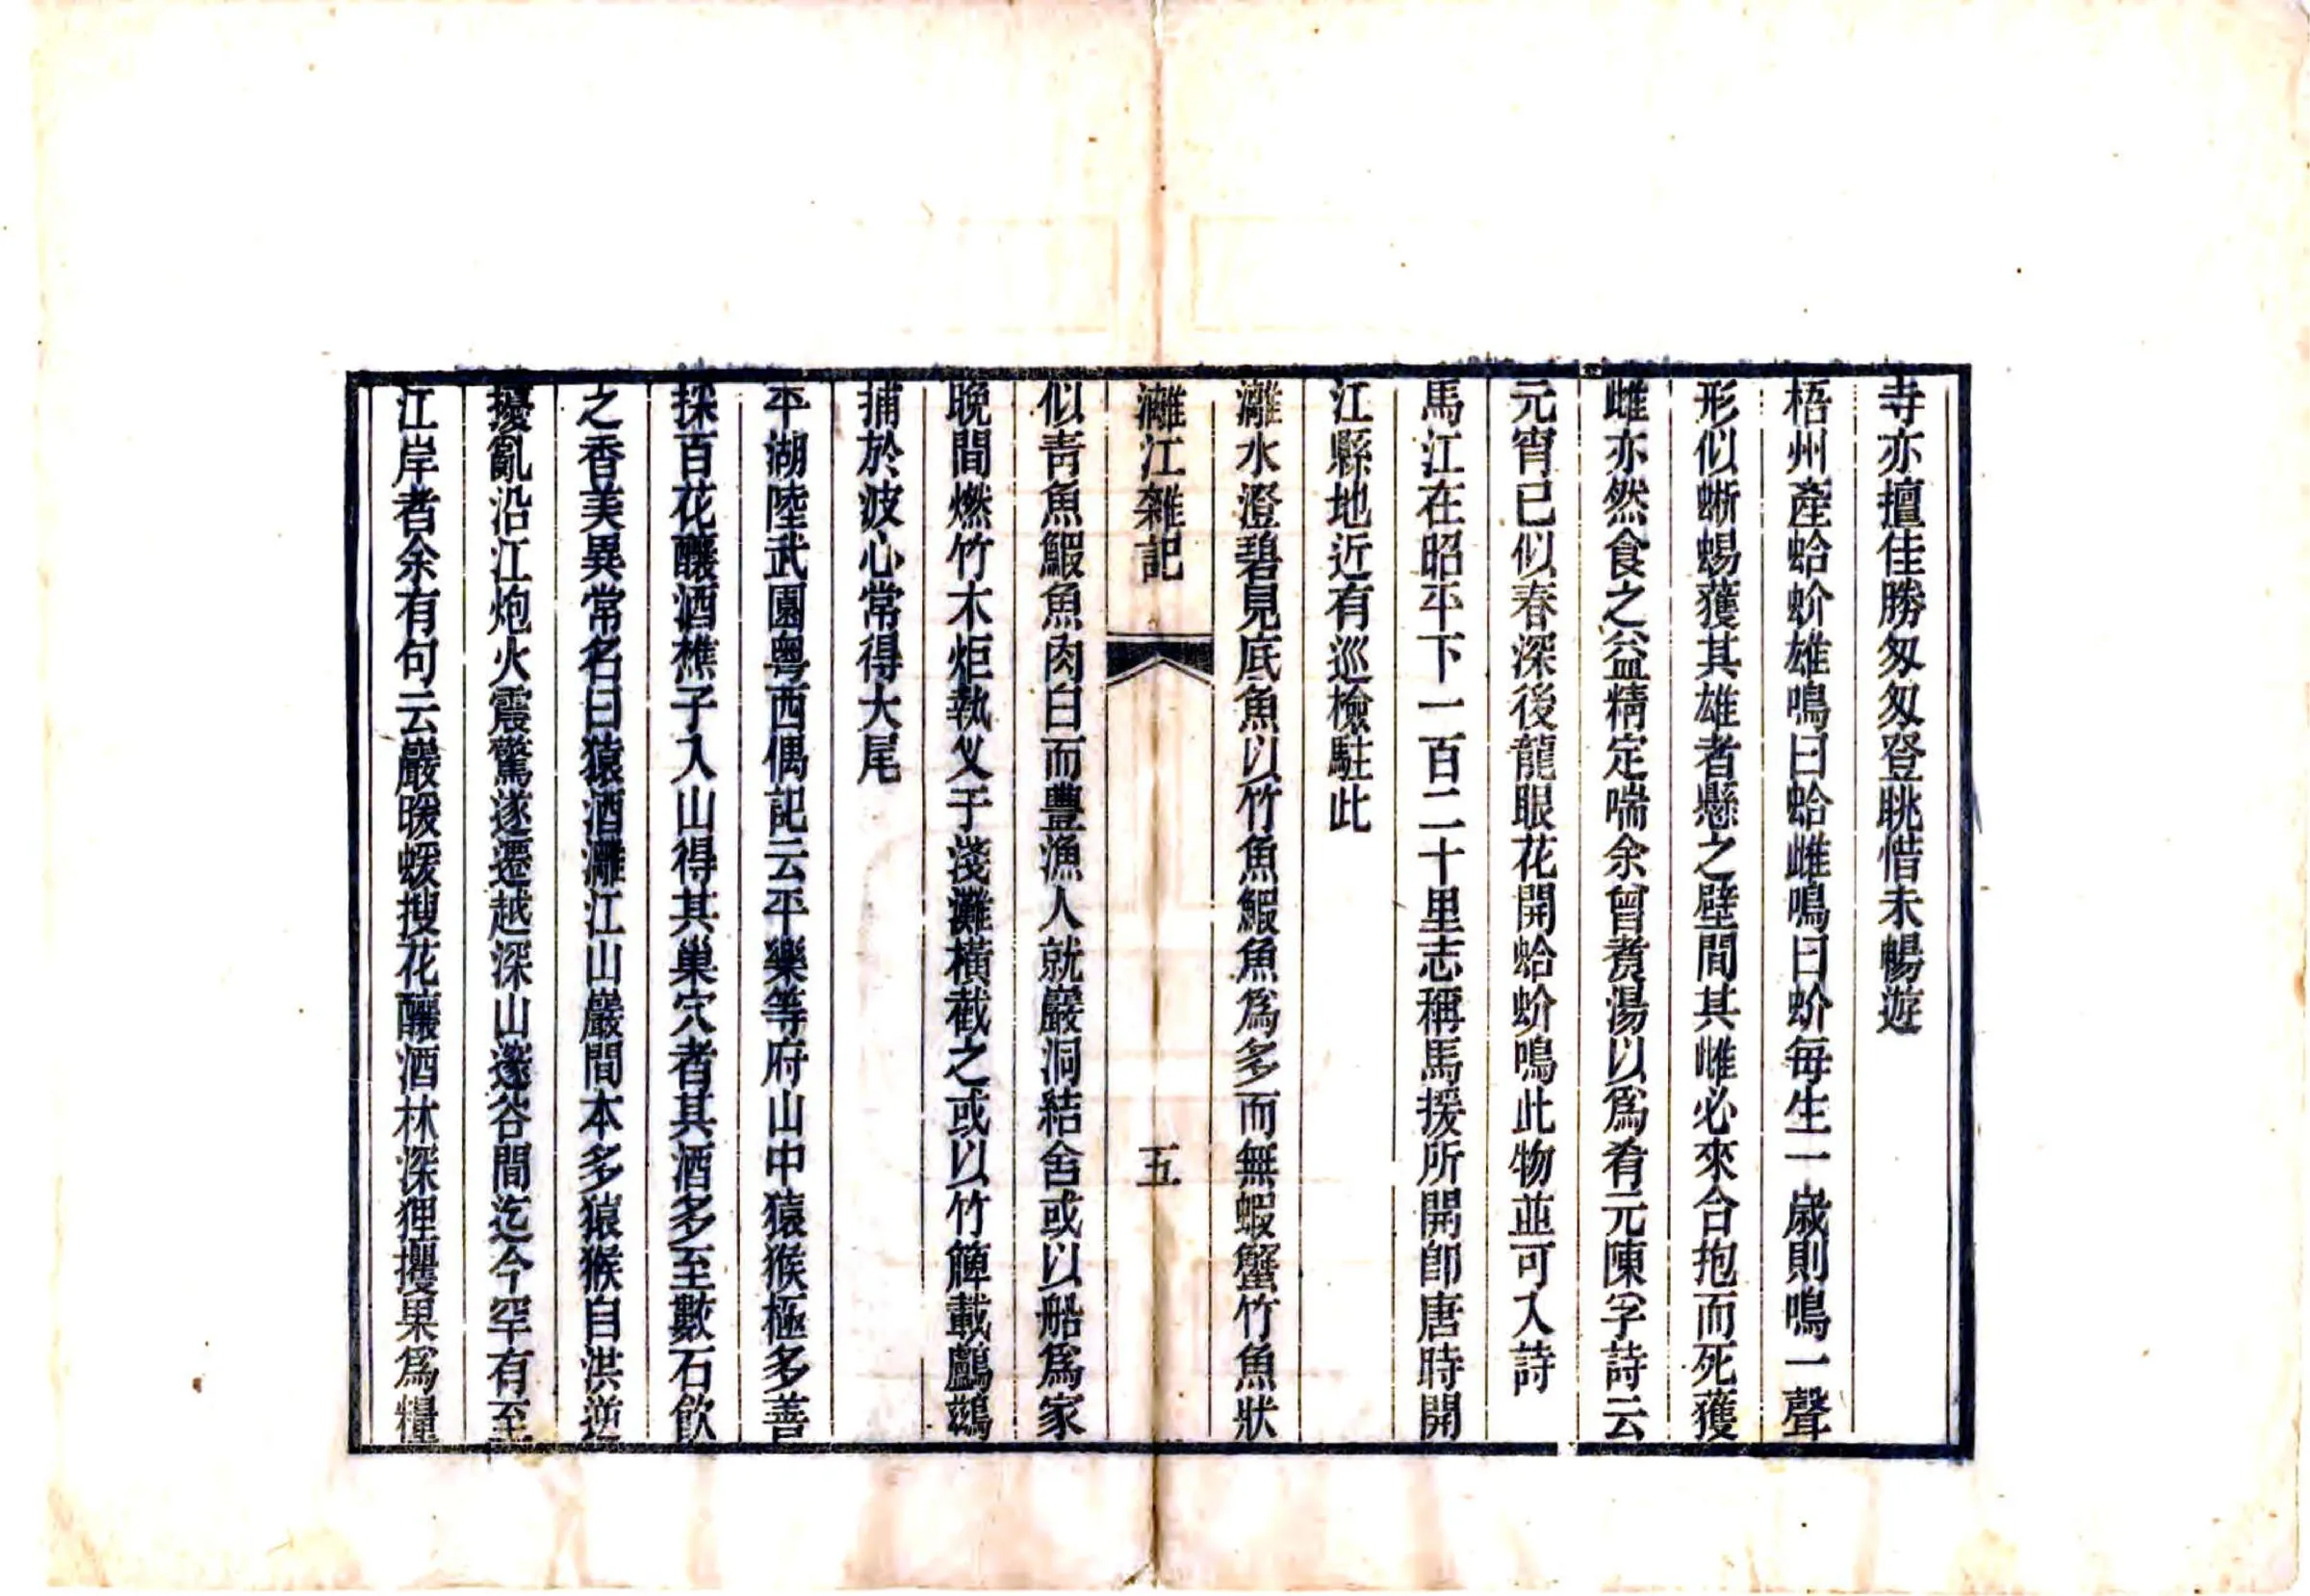 寺亦擅佳勝匆匆登眺惜未暢遊
梧州產蛤蚧雄鳴曰蛤雌鳴曰蚧每生一歲則鳴一聲
形似蜥蜴獲其雄者懸之壁間其雌必來合抱而死獲
雌亦然食之益精定喘余曾煑湯以爲肴元陳孚詩云
元宵已似春深後龍眼花開蛤蚧鳴此物並可入詩
馬江在昭平下一百二十里志稱馬援所開卽唐時開
江縣地近有巡檢駐此
灕水澄碧見底魚以竹魚鰕魚爲多而無蝦蟹竹魚狀
灕江雜記
五
似青魚鰕魚肉白而豐漁人就巖洞結舍或以船爲家
晚間燃竹木炬執叉于淺灘橫截之或以竹簰載鸕鷀
捕於波心常得大尾
平湖陸武園粵西偶記云平樂等府山中猿猴極多善
採百花釀酒樵子入山得其巢穴者其酒多至數石飲
之香美異常名曰猿酒灕江山巖間本多猿猴自洪逆
擾亂沿江炮火震驚遂遷越深山邃谷間迄今罕有至
江岸者余有句云巖暖蝯搜花釀酒林深狸攫果爲糧